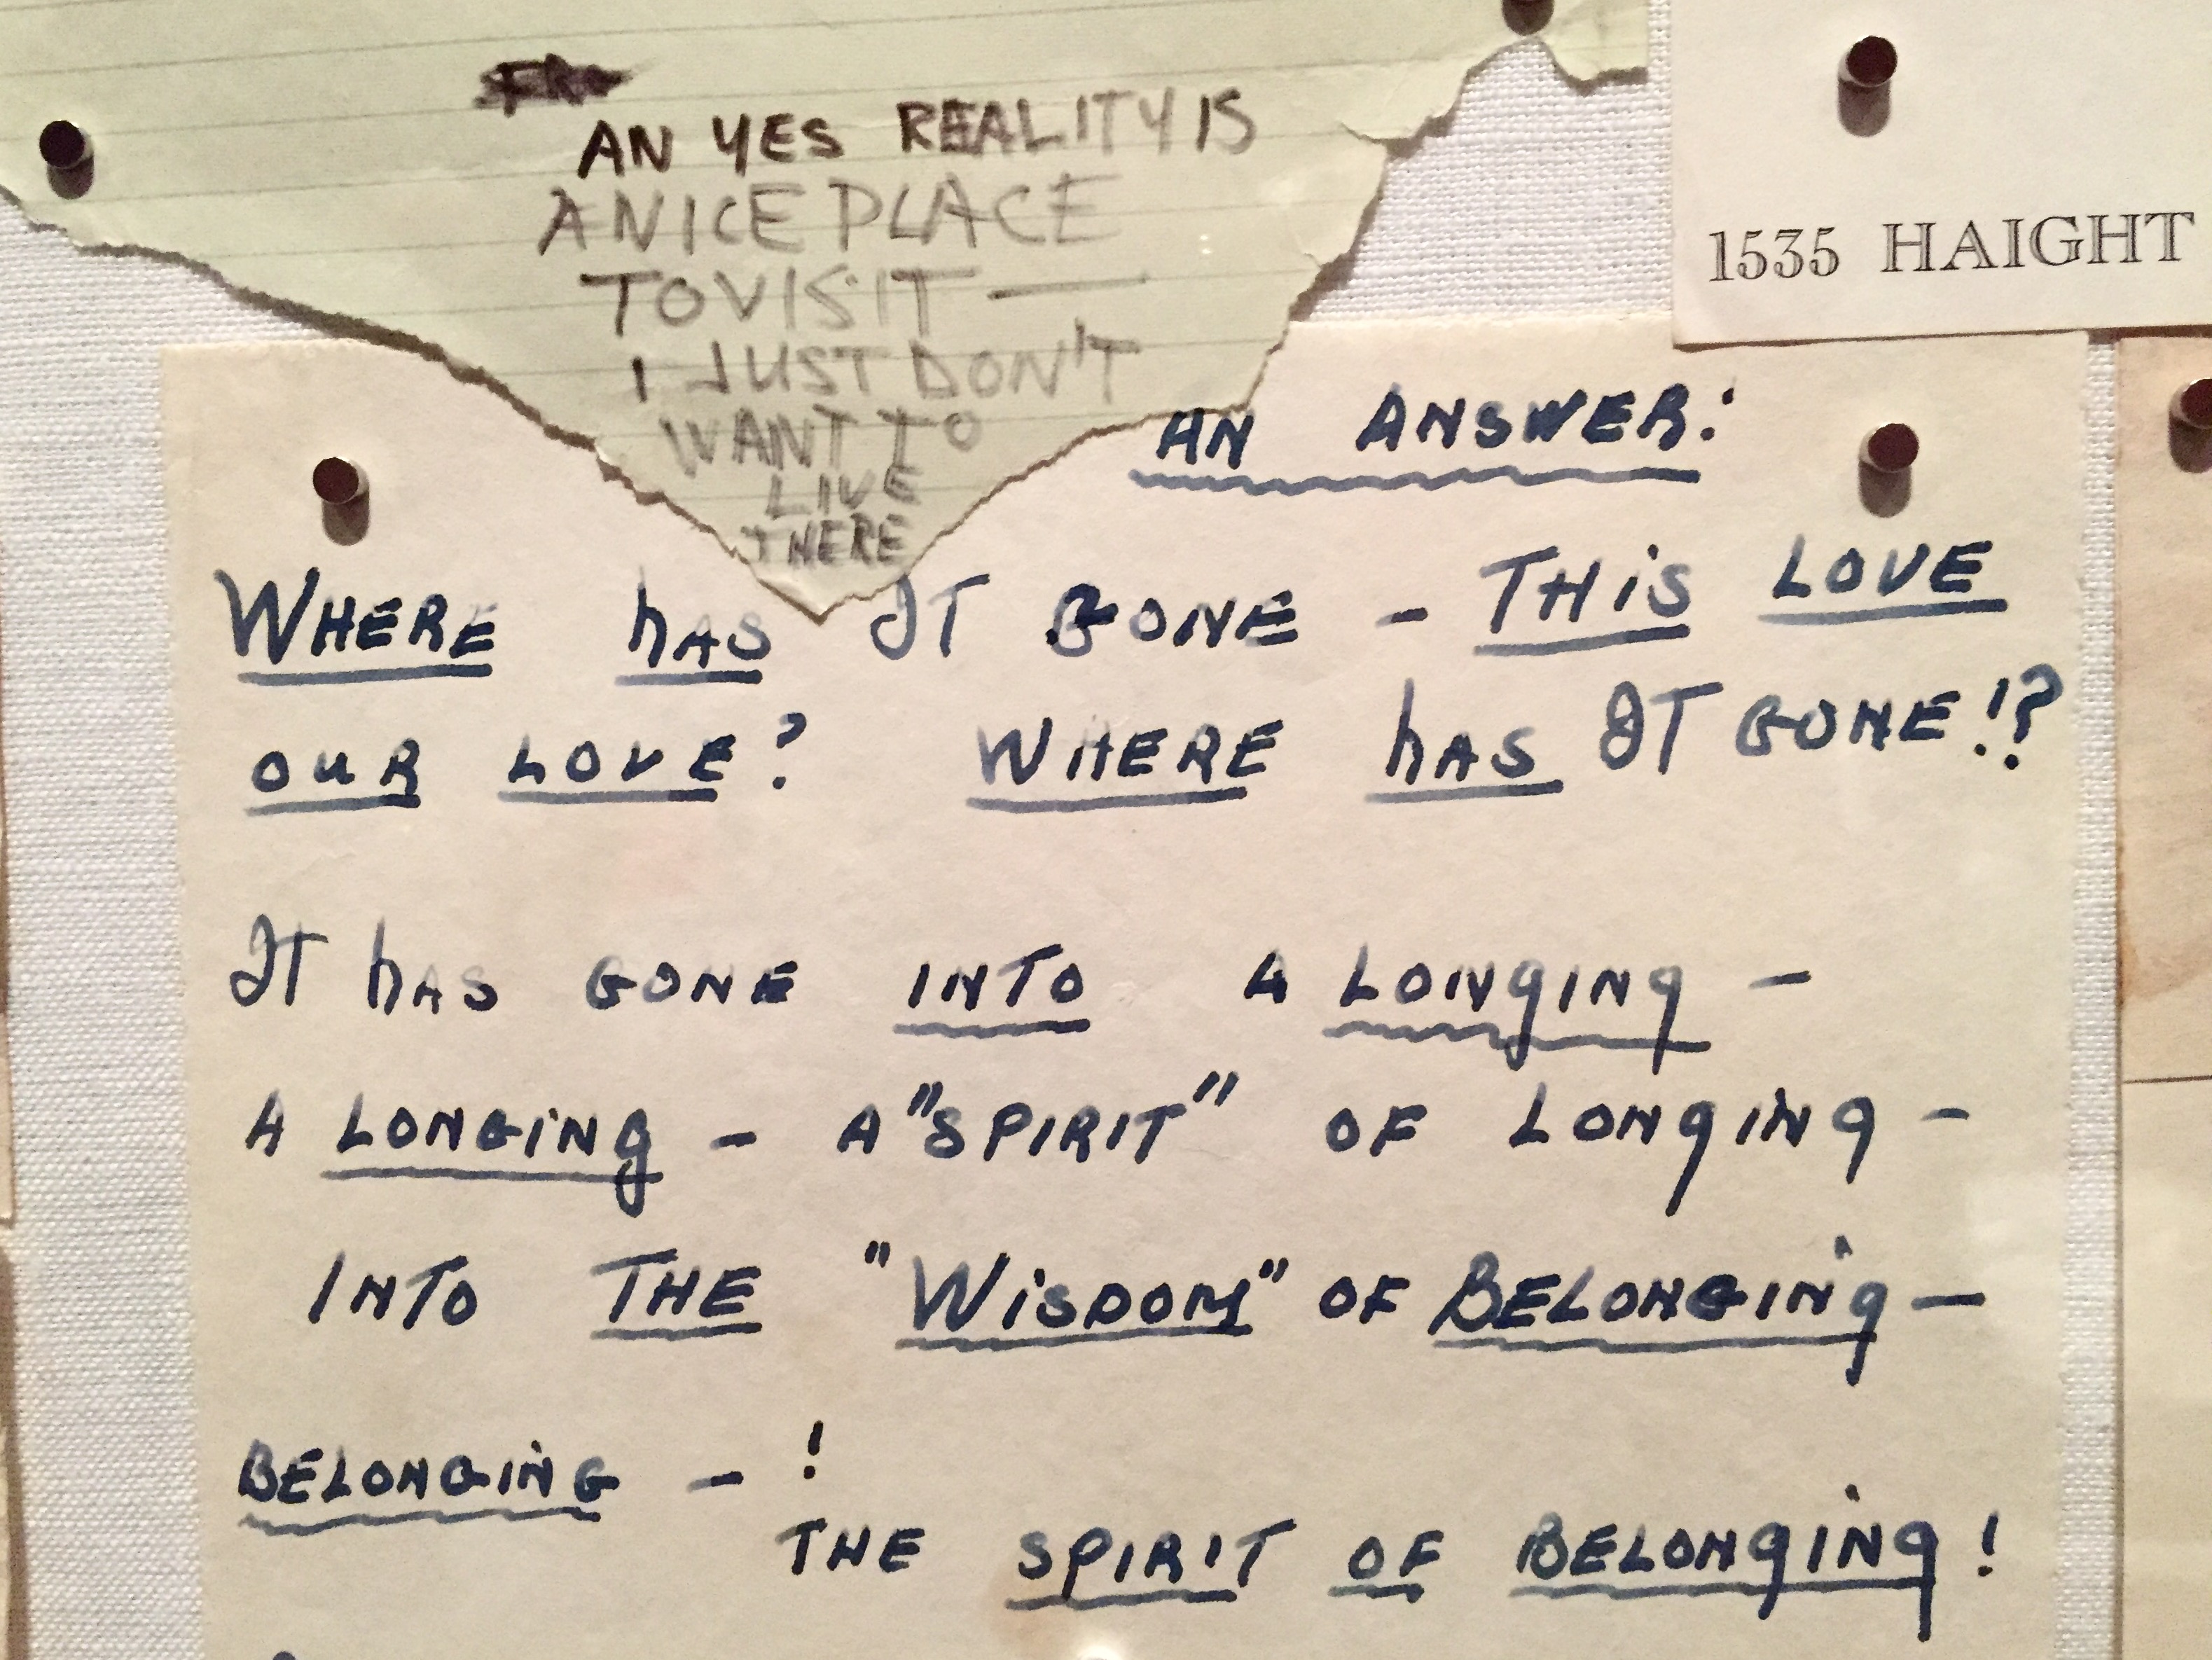 AN YES REALITY IS
A NICE PLACE
TO VISIT —
I JUST DON'T
WANT TO
LIVE
THERE
1535 HAIGHT
AN ANSWER:
WHERE hAS IT GONE - THIS LOVE
OUR LOVE? WHERE hAS IT GONE!?
IT hAS GONE INTO A LONGING -
A LONGING - A "SPIRIT" OF LONGING -
INTO THE "WISDOM" OF BELONGING -
BELONGING - !
THE SPIRIT OF BELONGING!